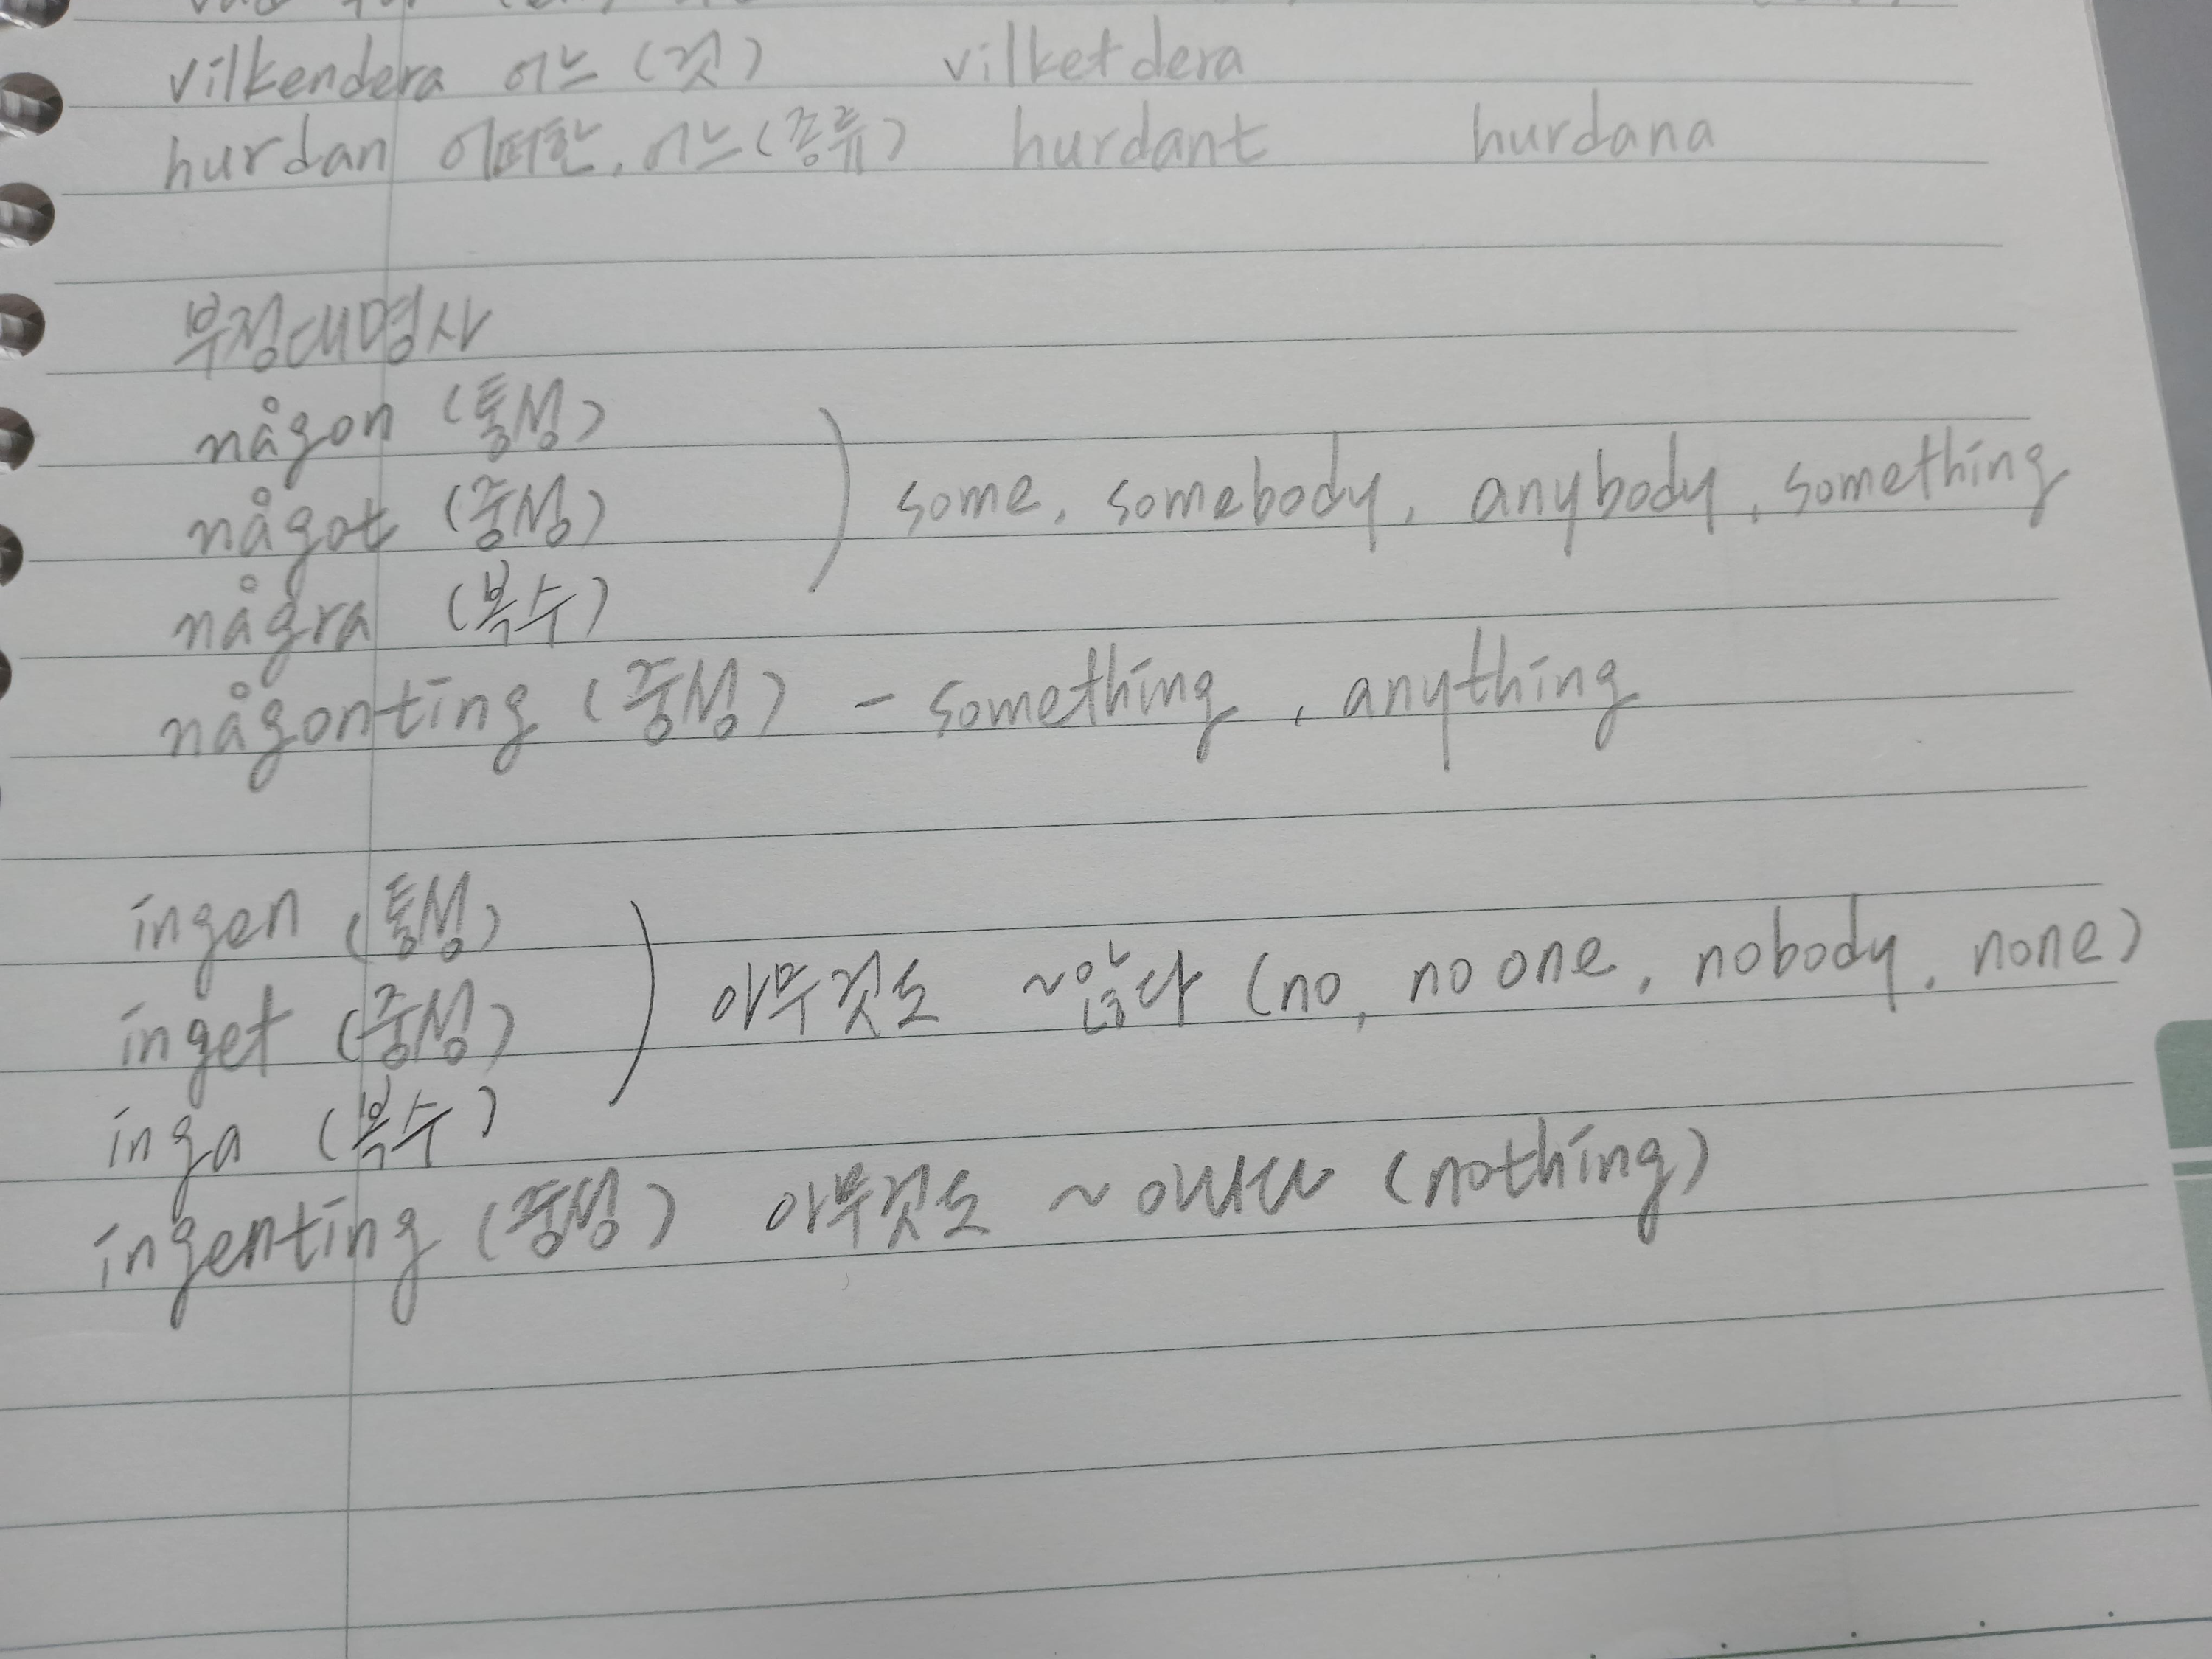 vilkendera 어느 (것) vilketdera
hurdan 어떠한, 어느 (종류) hurdant hurdana
부정대명사
någon (통성)
något (중성) ) some, somebody, anybody, something
några (복수)
någonting (중성) - something, anything
ingen (통성)
inget (중성) ) 아무것도 ~않다 (no, no one, nobody, none)
inga (복수)
ingenting (중성) 아무것도 ~아니다 (nothing)